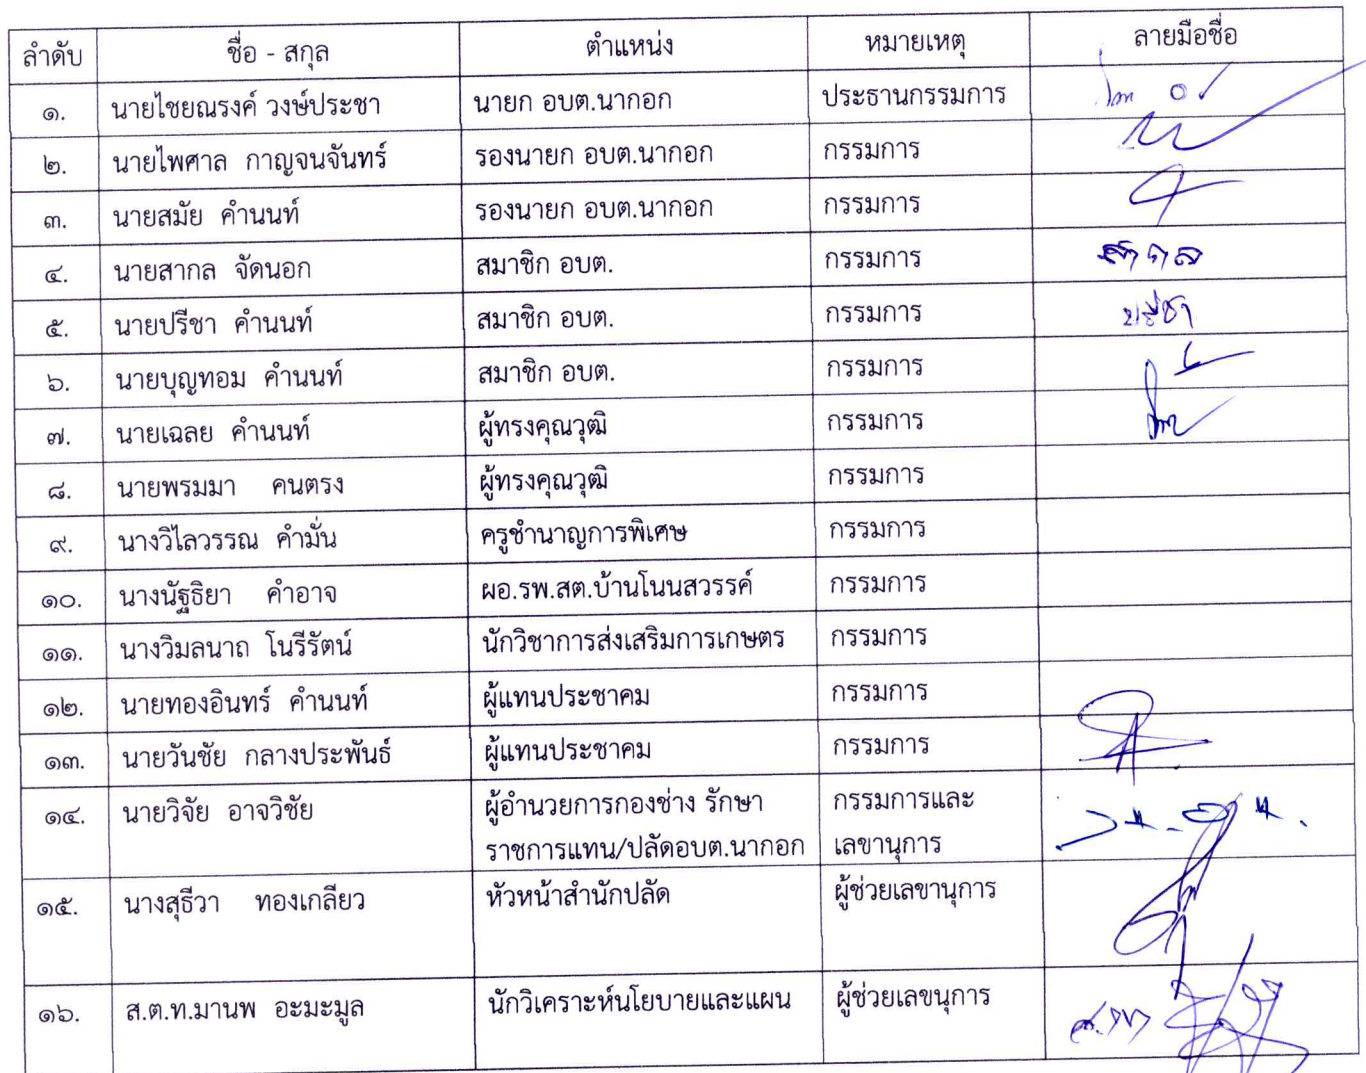 ลำดับ ชื่อ - สกุล ตำแหน่ง หมายเหตุ ลายมือชื่อ
๑. นายไชยณรงค์ วงษ์ประชา นายก อบต.นากอก ประธานกรรมการ
๒. นายไพศาล กาญจนจันทร์ รองนายก อบต.นากอก กรรมการ
๓. นายสมัย คำนนท์ รองนายก อบต.นากอก กรรมการ
๔. นายสากล จัดนอก สมาชิก อบต. กรรมการ สากล
๕. นายปรีชา คำนนท์ สมาชิก อบต. กรรมการ ปรีชา
๖. นายบุญทอม คำนนท์ สมาชิก อบต. กรรมการ
๗. นายเฉลย คำนนท์ ผู้ทรงคุณวุฒิ กรรมการ
๘. นายพรมมา คนตรง ผู้ทรงคุณวุฒิ กรรมการ
๙. นางวิไลวรรณ คำมั่น ครูชำนาญการพิเศษ กรรมการ
๑๐. นางนัฐธิยา คำอาจ ผอ.รพ.สต.บ้านโนนสวรรค์ กรรมการ
๑๑. นางวิมลนาถ โนรีรัตน์ นักวิชาการส่งเสริมการเกษตร กรรมการ
๑๒. นายทองอินทร์ คำนนท์ ผู้แทนประชาคม กรรมการ
๑๓. นายวันชัย กลางประพันธ์ ผู้แทนประชาคม กรรมการ
๑๔. นายวิจัย อาจวิชัย ผู้อำนวยการกองช่าง รักษา กรรมการและ
ราชการแทน/ปลัดอบต.นากอก เลขานุการ
๑๕. นางสุธีวา ทองเกลียว หัวหน้าสำนักปลัด ผู้ช่วยเลขานุการ
๑๖. ส.ต.ท.มานพ อะมะมูล นักวิเคราะห์นโยบายและแผน ผู้ช่วยเลขนุการ